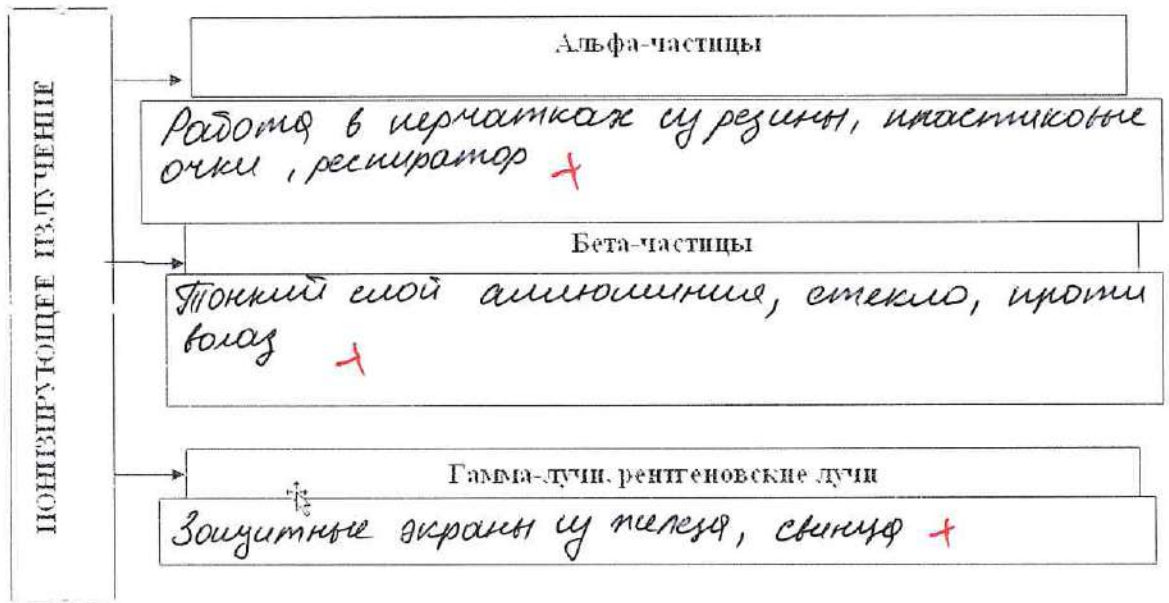 ИОНИЗИРУЮЩЕЕ ИЗЛУЧЕНИЕ
Альфа-частицы
Работа в перчатках из резины, пластиковые
очки, респиратор +
Бета-частицы
Тонкий слой аллюминия, стекло, проти
вогаз +
Гамма-лучи, рентгеновские лучи
Защитные экраны из железа, свинца +